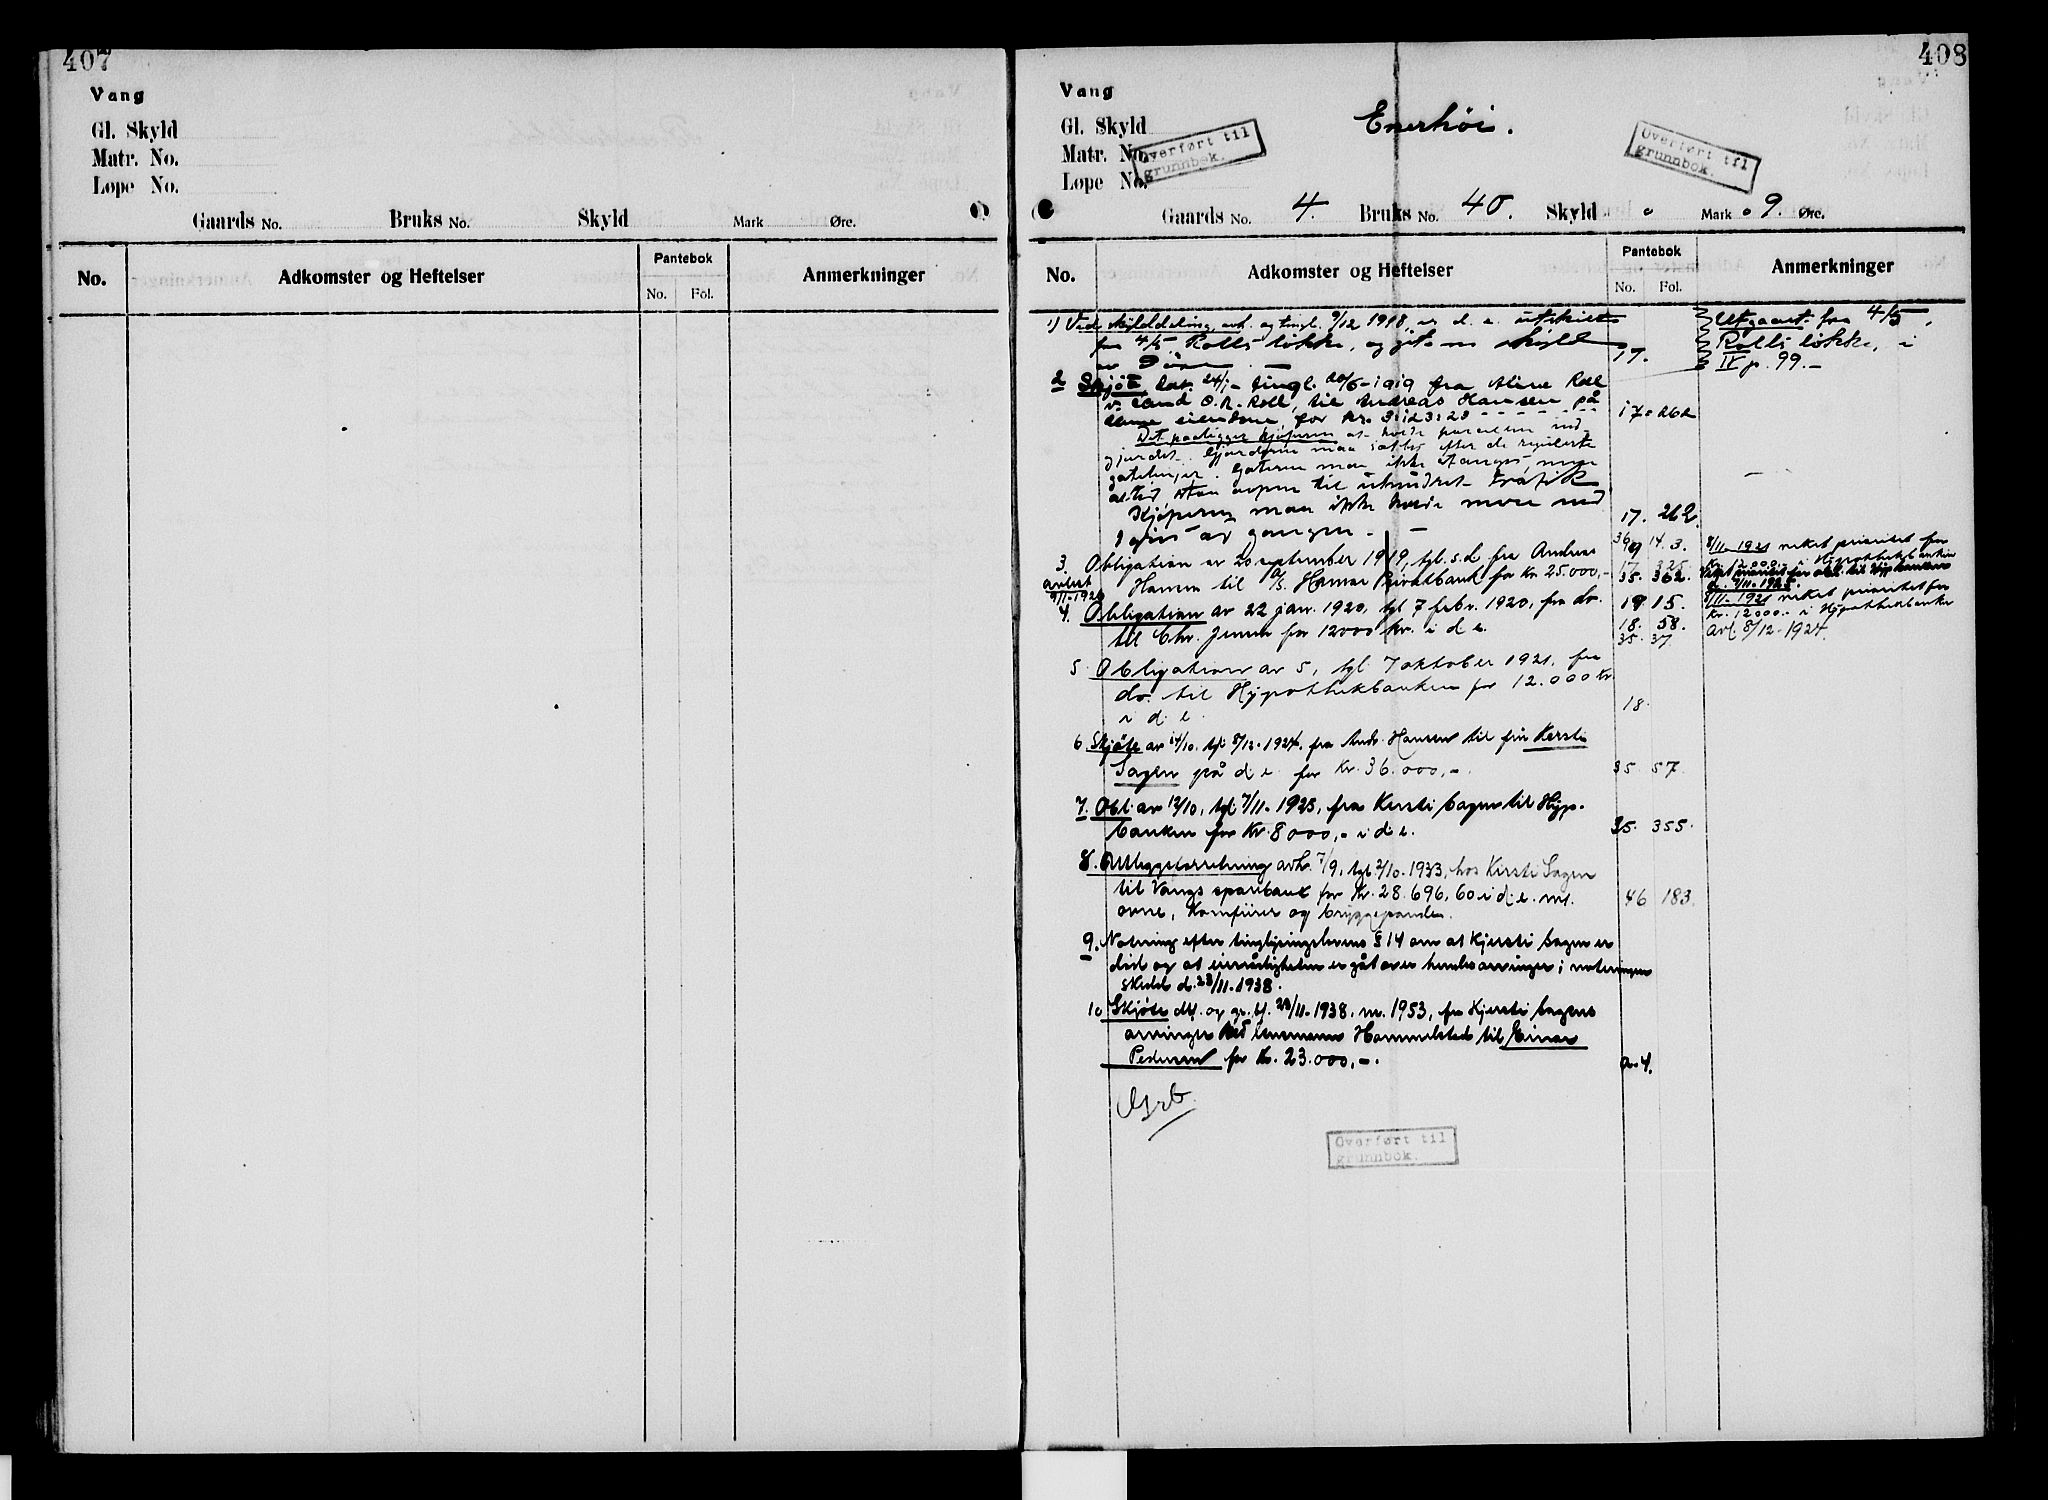 407
Vang
Gl. Skyld
Matr. No.
Løpe No.
Gaards No. Bruks No. Skyld Mark Øre.
No. Adkomster og Heftelser Pantebok Anmerkninger
No. Fol.
408
Vang
Gl. Skyld
Matr. No.
Løpe No.
Enerhöi.
Overført til
grunnbok.
Overført til
grunnbok.
Gaards No. 4. Bruks No. 40. Skyld 0 Mark 09. Øre.
No. Adkomster og Heftelser Pantebok Anmerkninger
No. Fol.
1) Ved skylddeling avh. og tingl. 9/12 1918 er d. e. utskilt
fra 4/5 Rolls løkke, og git en skyld 17.
av 9 øre. —
Utgaaet fra 4/5,
Rolls løkke, i
IV p. 99. —
2 Skjöte dat. 24/1 - tingl. 20/6-1919 fra Aline Roll
O. R. Roll, til Andreas Hansen på
denne eiendom, for kr. 3123:28 17. 262
Det paaligger kjøperen at holde parcellen ind-
gjerdet. Gjerderne maa sættes efter de regulerte
gatelinjer. Gaterne maa ikke stænges, men
altid staa aapne til uhindret trafik
Kjøperen maa ikke holde mere end
1 gris av gangen. — 17. 262.
3. Obligation av 20 september 1919, tgl. s.d. fra Andreas
Hansen til A/S. Hamar Privatbank for kr 25.000,-
avlest
9/11-1926
19 14. 3.
17 325
35. 362.
8/11-1921 veket prioritet for
kr. 12000,- i Hypothekbanken
4. Obligation av 22 jan. 1920, tgl 7 febr. 1920, fra do.
til Chr. Jensen for 12000 kr. i d e.
19 15.
18. 58.
35. 37
8/11-1921 veket prioritet for
kr. 12000.- i Hypothekbanken
Avl. 8/12-1924.
5. Obligation av 5, tgl. 7 oktober 1921, fra
do. til Hypothekbanken for 12.000 kr
i d. e. 18.
6. Skjöte av 14/10, tgl 8/12-1924, fra Andr. Hansen til frk Kersti
Sagen på d. e. for kr. 36.000,-. 35. 57.
7. Obl. av 12/10, tgl 7/11-1925, fra Kersti Sagen til Hyp.
banken for kr. 8000,- i d. e. 35. 355.
8. Utleggsforretning avh. 7/9, tgl. 2/10-1933, hos Kirsti Sagen
til Vangs sparebank for kr. 28.696,60 i d. e. m.
ovne, komfürer og bryggepander. 46 183.
9. Notering efter tinglysingslovens § 14 om at Kjersti Sagen er
död og at eierrådigheten er gåt over hendes arvinger i noteringen
skedd d. 23/11-1938.
10 Skjöte dat. og gr.bf. 23/11-1938, nr. 1953, fra Kjersti Sagens
arvinger ved lensmann Hammelstad til Einar
Pedersen for kr. 23.000,-. a-4.
Overført til
grunnbok.